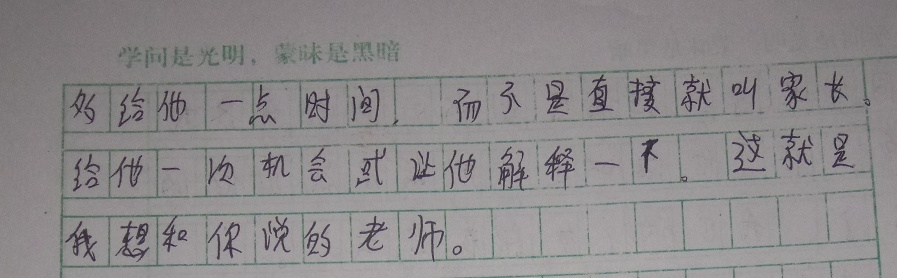 学问是光明，蒙昧是黑暗
多给他一点时间，而不是直接就叫家长。
给他一次机会或让他解释一下。这就是
我想和你说的老师。